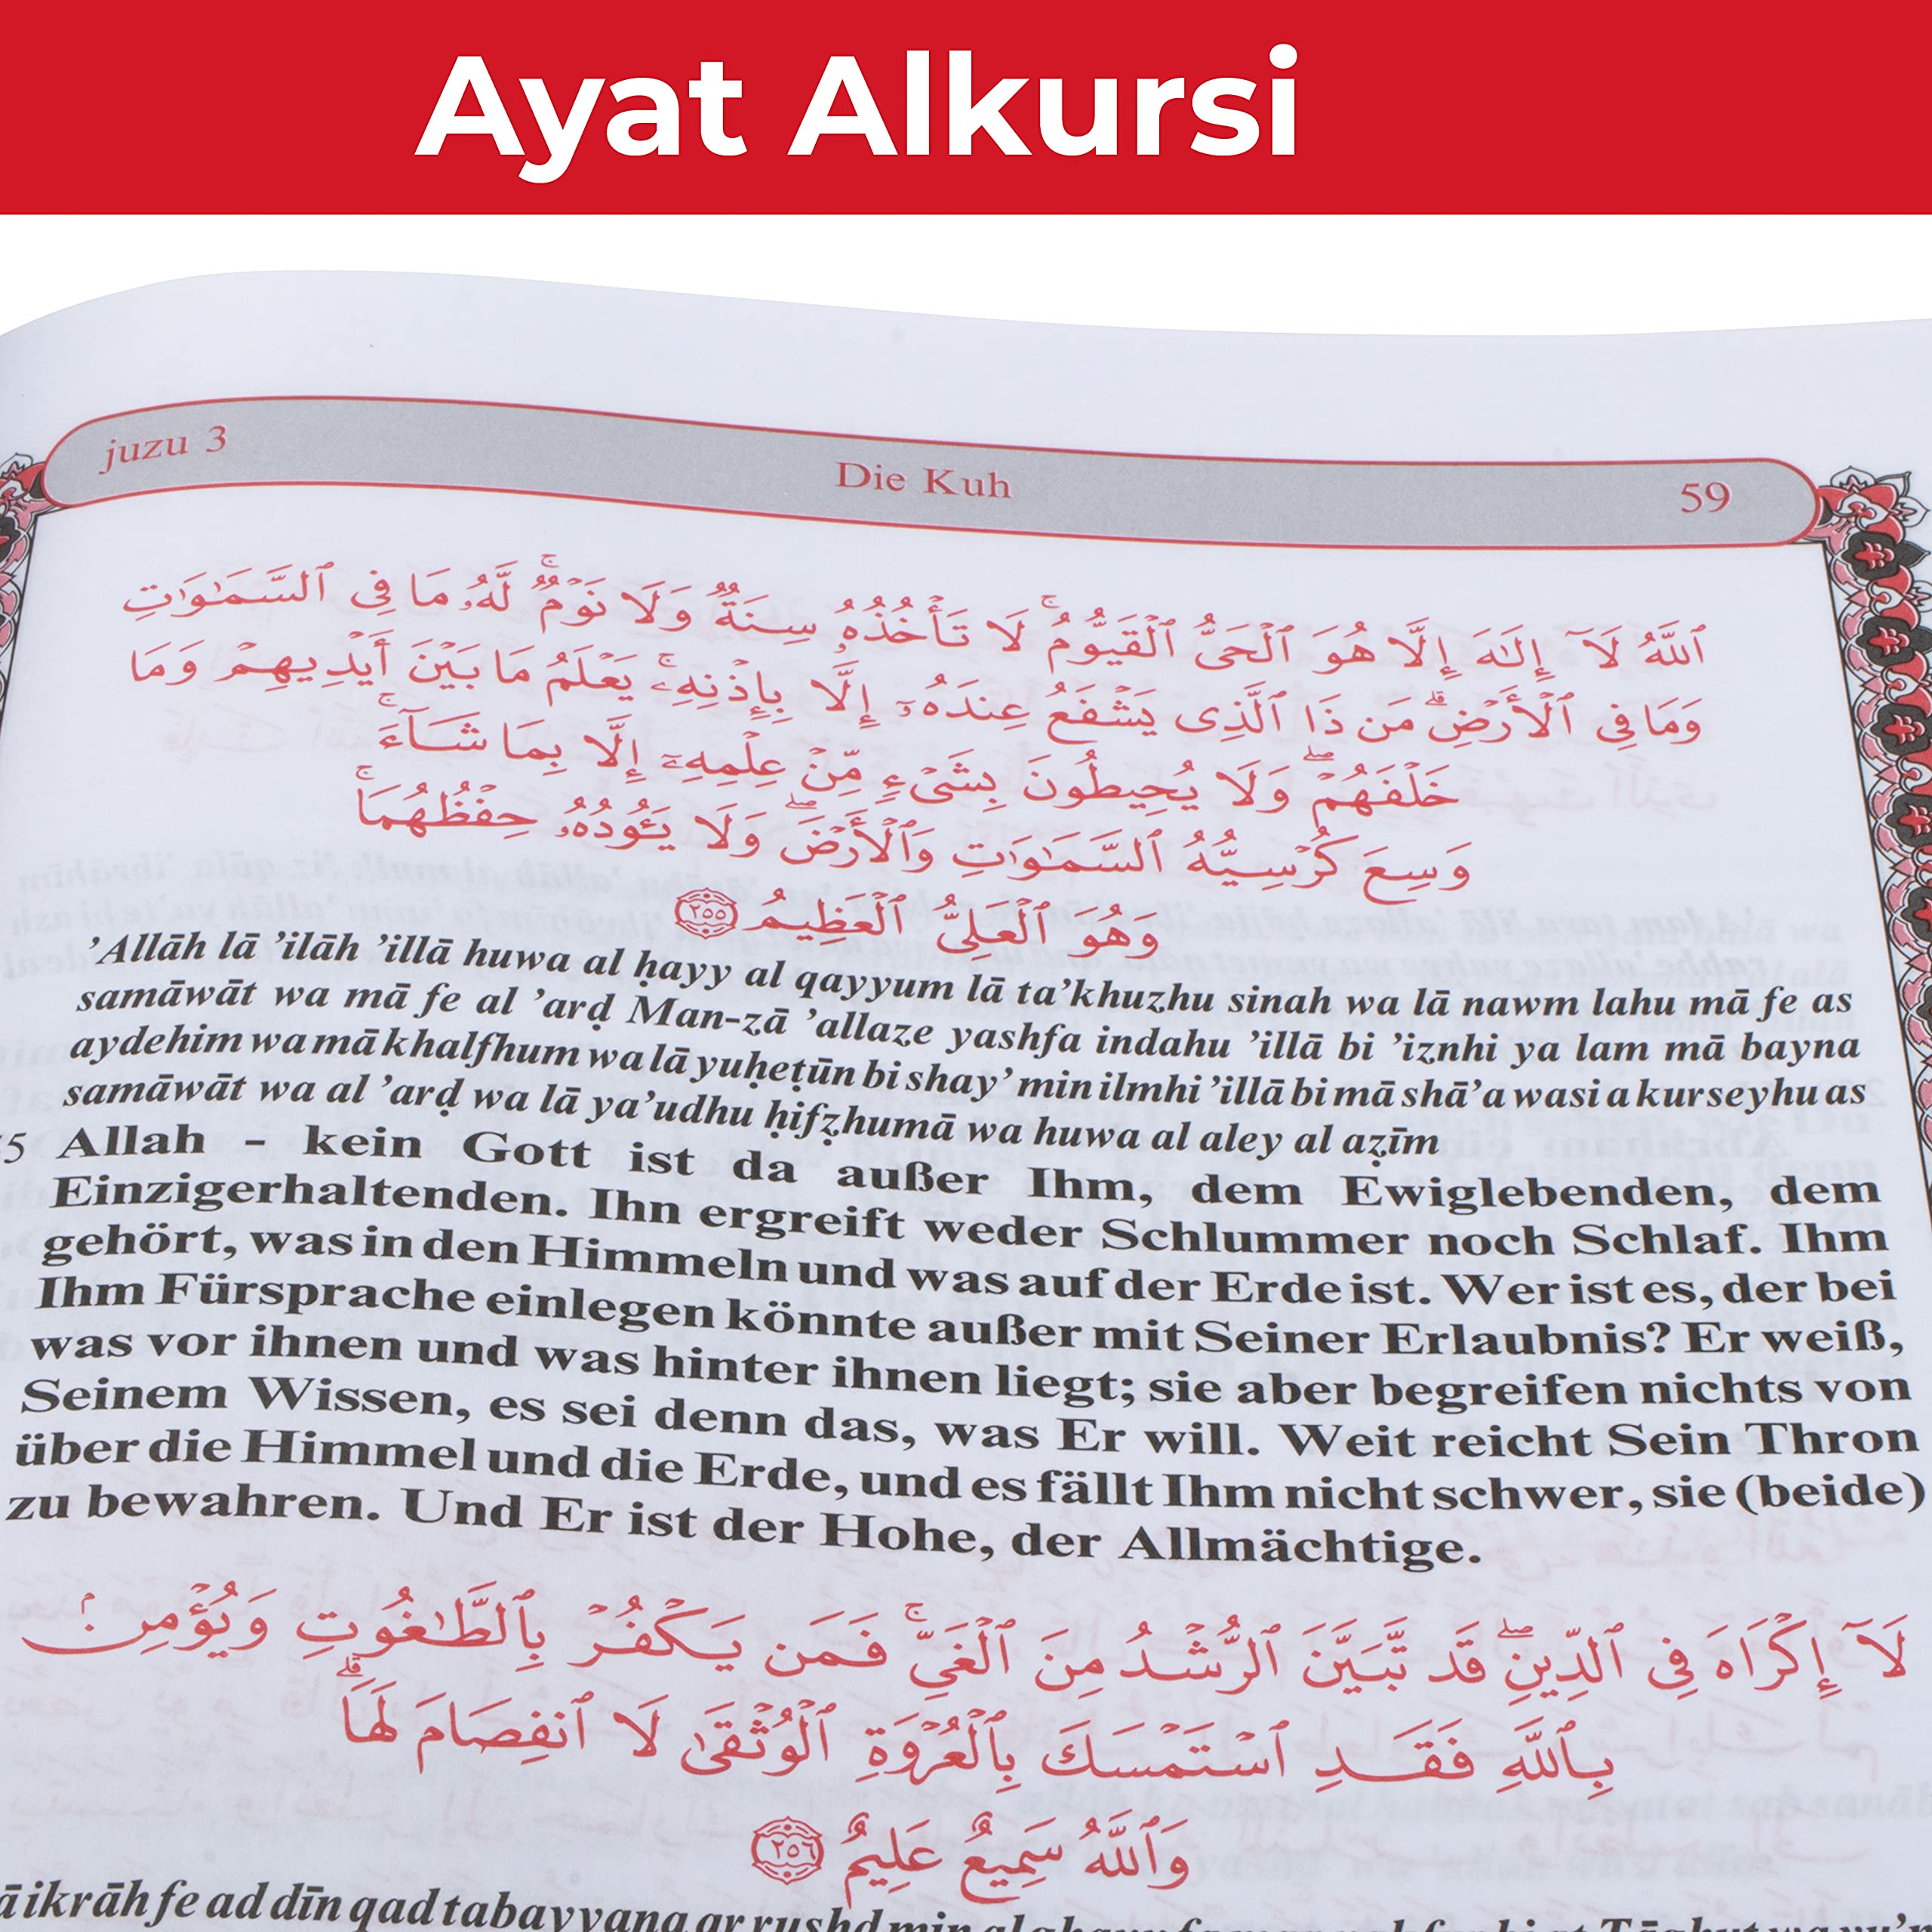 Ayat Alkursi
juzu 3 Die Kuh 59
ٱللَّهُ لَآ إِلَٰهَ إِلَّا هُوَ ٱلْحَىُّ ٱلْقَيُّومُ ۚ لَا تَأْخُذُهُۥ سِنَةٌ وَلَا نَوْمٌ ۚ لَّهُۥ مَا فِى ٱلسَّمَٰوَٰتِ
وَمَا فِى ٱلْأَرْضِ ۗ مَن ذَا ٱلَّذِى يَشْفَعُ عِندَهُۥٓ إِلَّا بِإِذْنِهِۦ ۚ يَعْلَمُ مَا بَيْنَ أَيْدِيهِمْ وَمَا
خَلْفَهُمْ ۖ وَلَا يُحِيطُونَ بِشَىْءٍ مِّنْ عِلْمِهِۦٓ إِلَّا بِمَا شَآءَ ۚ
وَسِعَ كُرْسِيُّهُ ٱلسَّمَٰوَٰتِ وَٱلْأَرْضَ ۖ وَلَا يَـُٔودُهُۥ حِفْظُهُمَا ۚ
وَهُوَ ٱلْعَلِىُّ ٱلْعَظِيمُ ٢٥٥
’Allāh lā ’ilāh ’illā huwa al ḥayy al qayyum lā ta’khuzhu sinah wa lā nawm lahu mā fe as
samāwāt wa mā fe al ’arḍ Man-zā ’allaze yashfa indahu ’illā bi ’iznhi ya lam mā bayna
aydehim wa mā khalfhum wa lā yuḥeṭūn bi shay’ min ilmhi ’illā bi mā shā’a wasi a kurseyhu as
samāwāt wa al ’arḍ wa lā ya’udhu ḥifẓhumā wa huwa al aley al aẓīm
5 Allah – kein Gott ist da außer Ihm, dem Ewiglebenden, dem
Einzigerhaltenden. Ihn ergreift weder Schlummer noch Schlaf. Ihm
gehört, was in den Himmeln und was auf der Erde ist. Wer ist es, der bei
Ihm Fürsprache einlegen könnte außer mit Seiner Erlaubnis? Er weiß,
was vor ihnen und was hinter ihnen liegt; sie aber begreifen nichts von
Seinem Wissen, es sei denn das, was Er will. Weit reicht Sein Thron
über die Himmel und die Erde, und es fällt Ihm nicht schwer, sie (beide)
zu bewahren. Und Er ist der Hohe, der Allmächtige.
لَآ إِكْرَاهَ فِى ٱلدِّينِ ۖ قَد تَّبَيَّنَ ٱلرُّشْدُ مِنَ ٱلْغَىِّ ۚ فَمَن يَكْفُرْ بِٱلطَّٰغُوتِ وَيُؤْمِنۢ
بِٱللَّهِ فَقَدِ ٱسْتَمْسَكَ بِٱلْعُرْوَةِ ٱلْوُثْقَىٰ لَا ٱنفِصَامَ لَهَا ۗ
وَٱللَّهُ سَمِيعٌ عَلِيمٌ ٢٥٦
ā ikrāh fe ad dīn qad tabayyana ar rushd min al